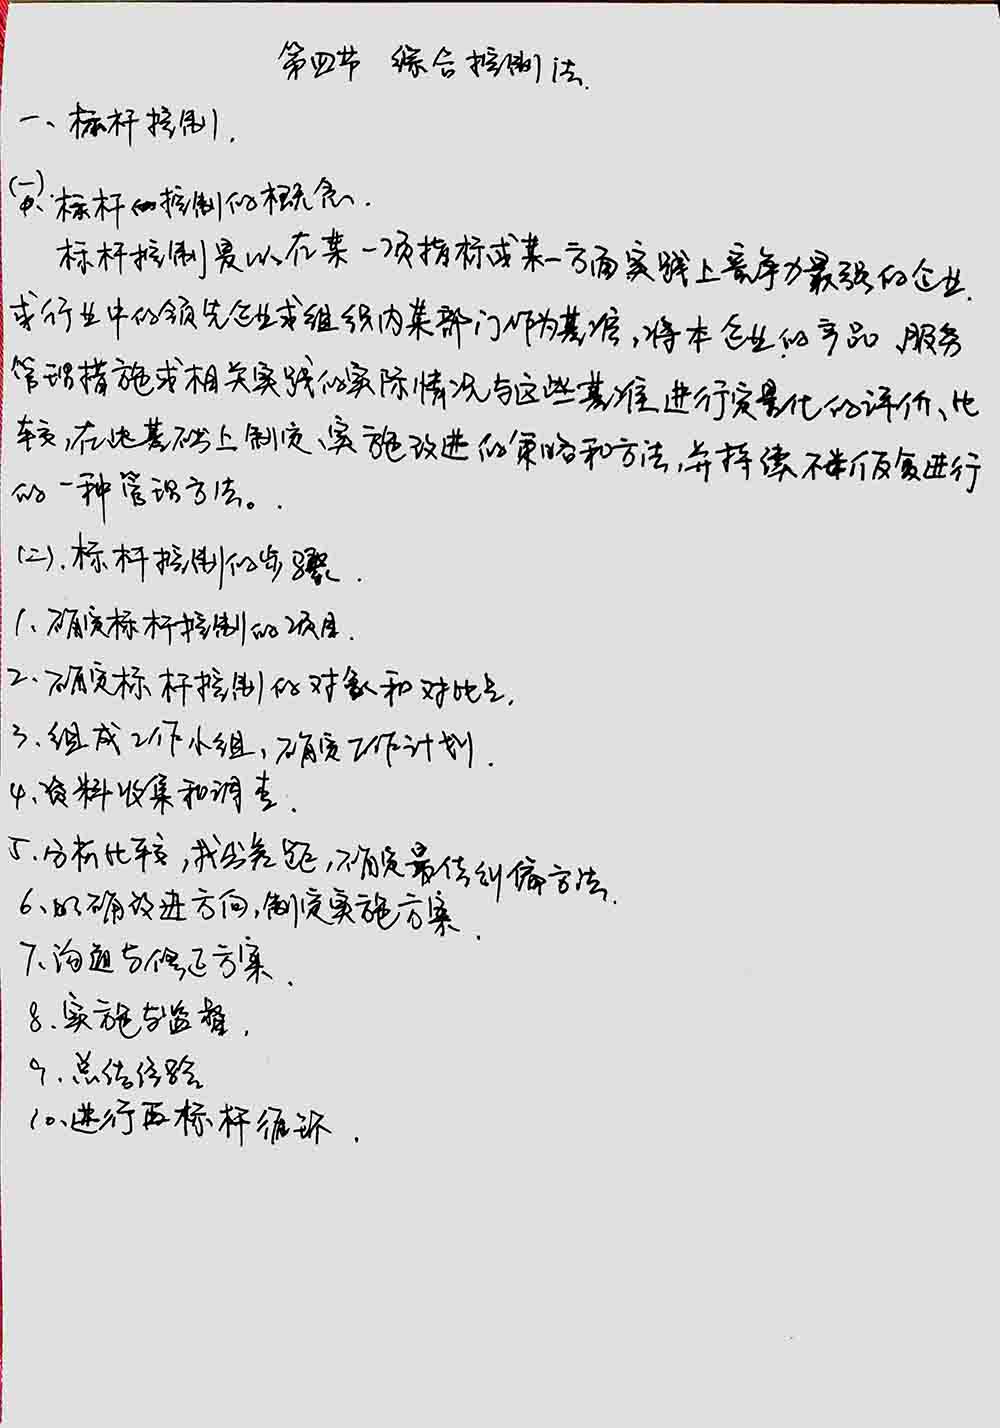 第四节 综合控制法.
一、标杆控制.
(一).标杆控制的概念.
标杆控制是以在某一项指标或某一方面实践上竞争力最强的企业
或行业中的领先企业或组织内某部门作为基准,将本企业的产品、服务
管理措施或相关实践的实际情况与这些基准进行定量化的评价、比
较,在此基础上制定、实施改进的策略和方法,并持续不断反复进行
的一种管理方法。.
(二).标杆控制的步骤.
1、确定标杆控制的项目.
2、确定标杆控制的对象和对比点.
3、组成工作小组,确定工作计划.
4、资料收集和调查.
5.分析比较,找出差距,确定最佳纠偏方法.
6、明确改进方向,制定实施方案.
7、沟通与修正方案.
8.实施与监督.
9.总结经验
10、进行再标杆循环.